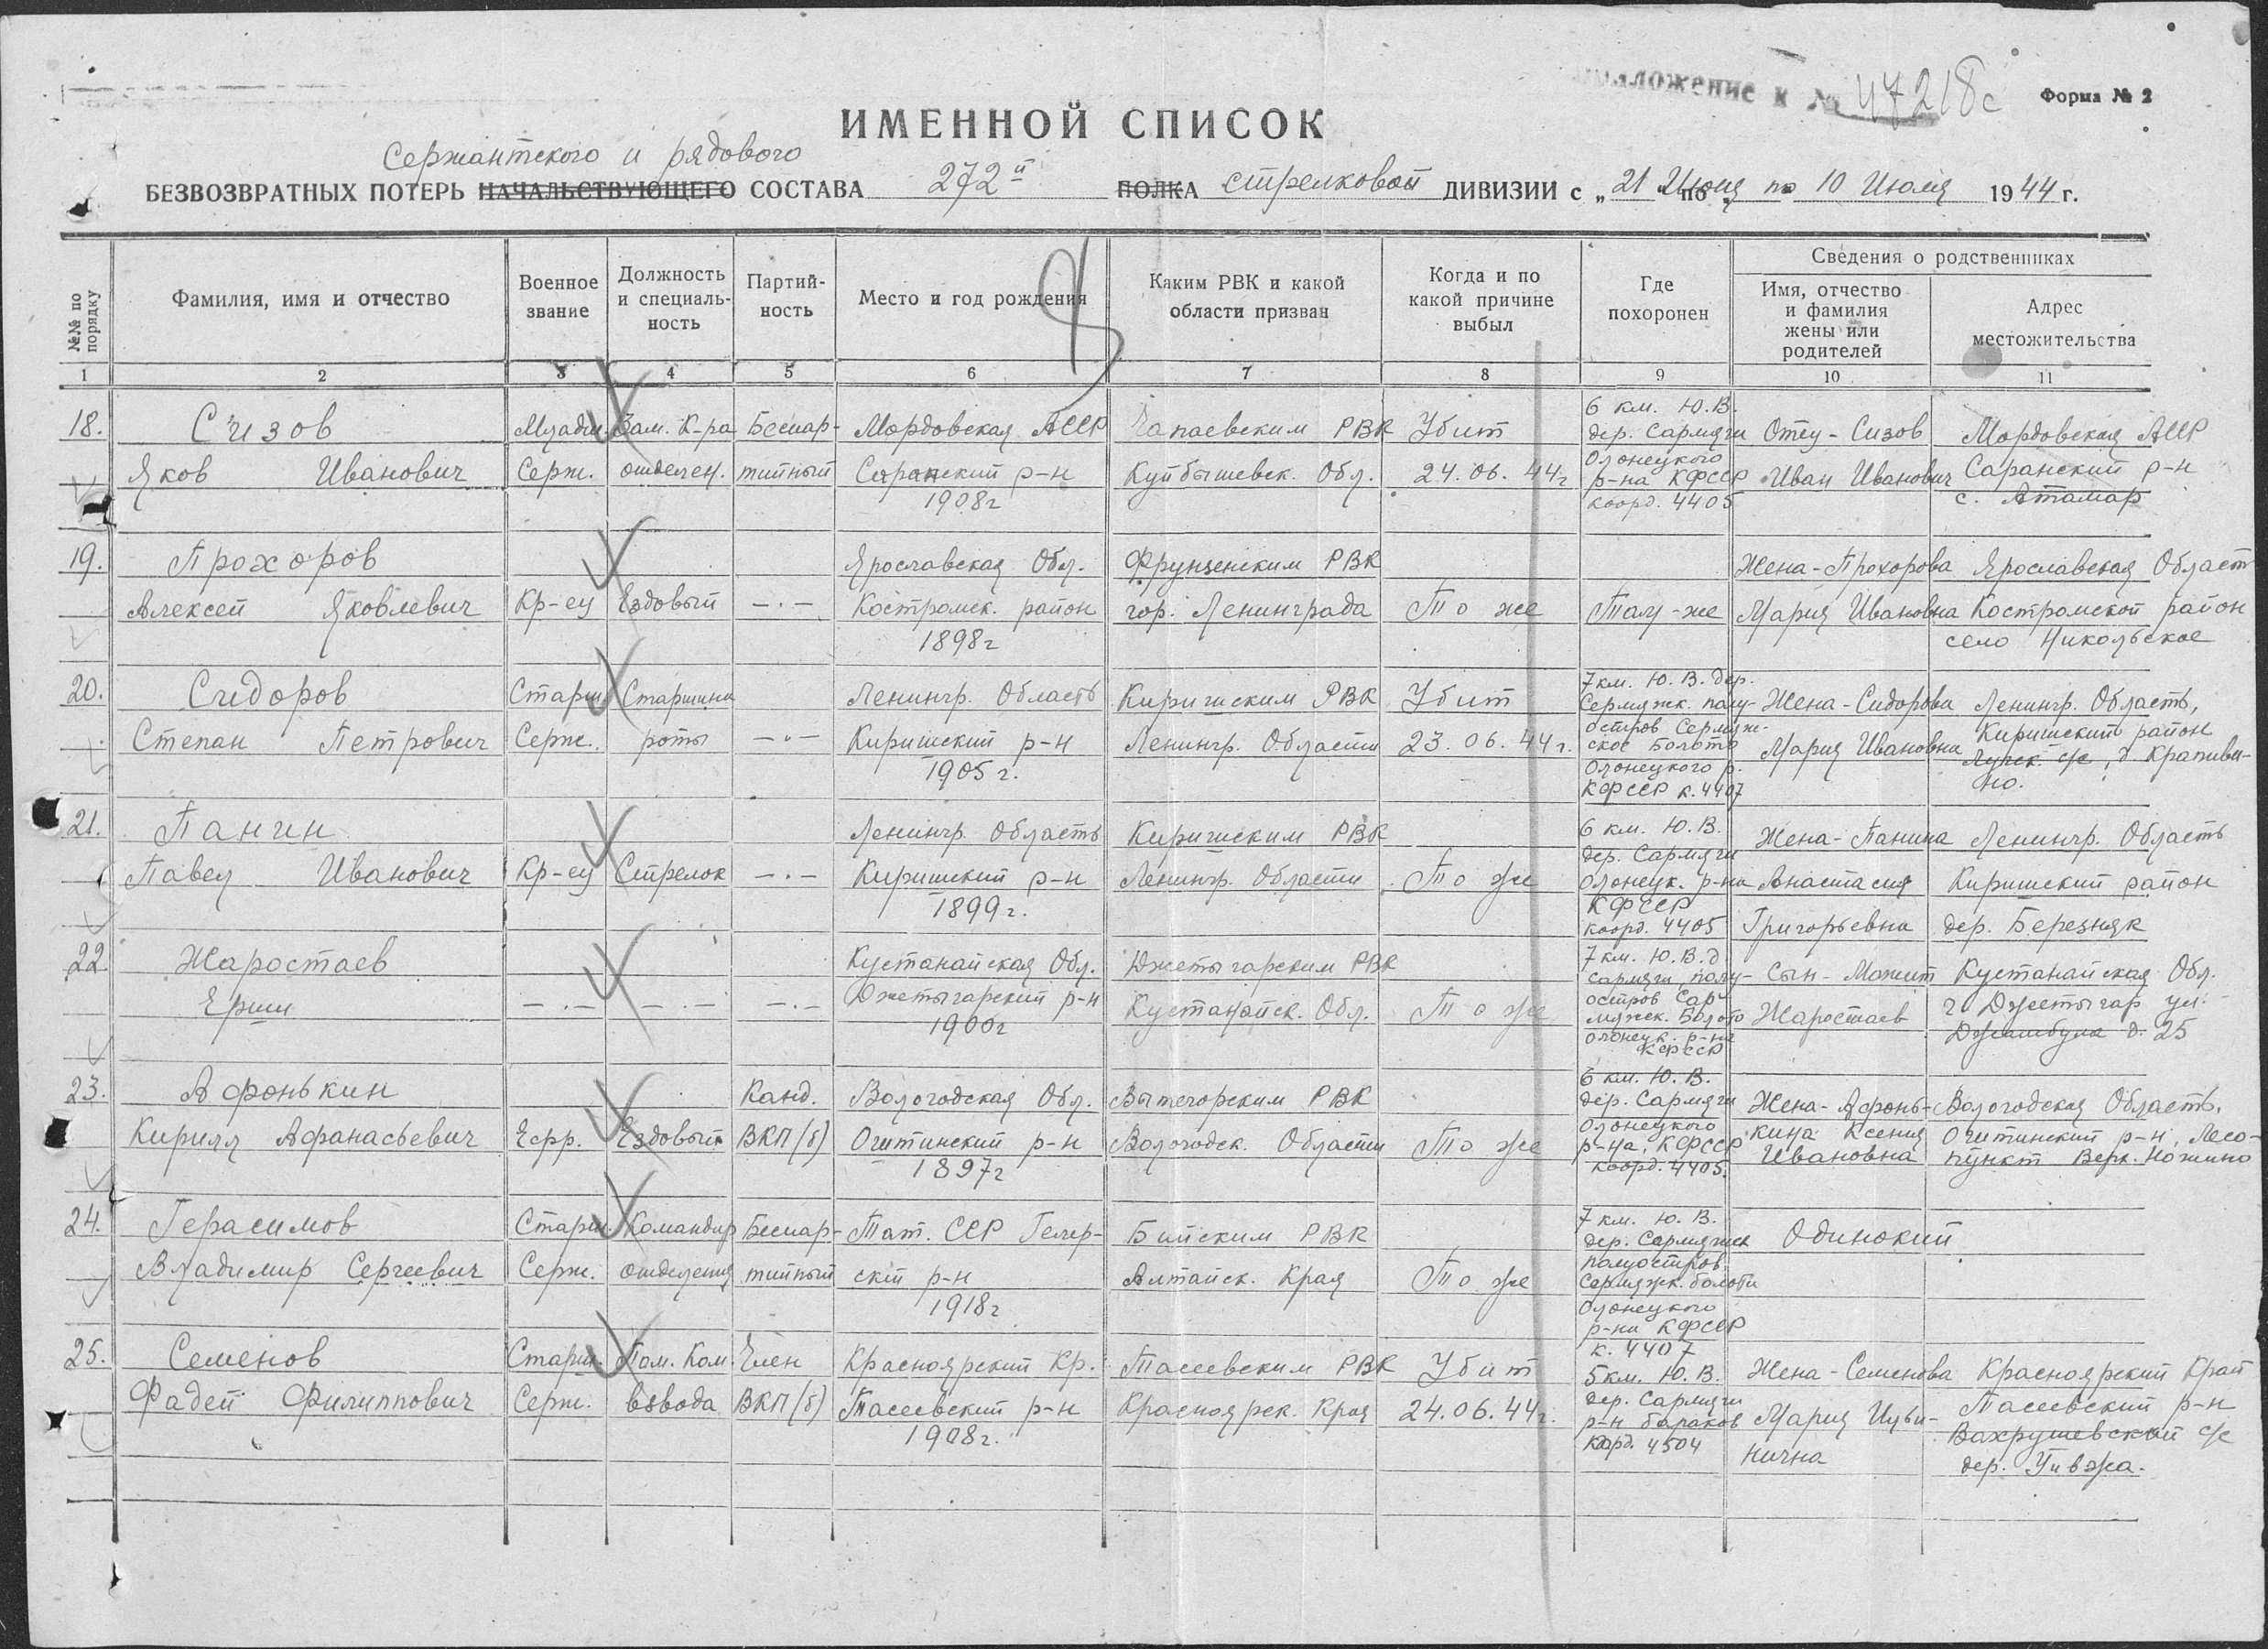 Приложение к № 47218с
Форма № 2
ИМЕННОЙ СПИСОК
Сержантского и рядового
БЕЗВОЗВРАТНЫХ ПОТЕРЬ НАЧАЛЬСТВУЮЩЕГО СОСТАВА 272й ПОЛКА стрелковой ДИВИЗИИ с „21 Июня по 10 Июля 1944 г.
№№ по порядку
Фамилия, имя и отчество
Военное звание
Должность и специаль-ность
Партий-ность
Место и год рождения
Каким РВК и какой области призван
Когда и по какой причине выбыл
Где похоронен
Сведения о родственниках
Имя, отчество и фамилия жены или родителей
Адрес местожительства
1 2 3 4 5 6 7 8 9 10 11
18. Сизов Яков Иванович
Младш. Серж.
Зам. К-ра отделен.
Беспар-тийный
Мордовская АССР Саранский р-н 1908г
Чапаевским РВК Куйбышевск. Обл.
Убит 24.06.44г
6 км. Ю.В. дер. Сармяги Олонецкого р-на КФССР коорд. 4405
Отец - Сизов Иван Иванович
Мордовская АССР Саранский р-н с. Атамар
19. Прохоров Алексей Яковлевич
Кр-ец
Ездовый
—·—
Ярославская Обл. Костромск. район 1898г
Фрунзенским РВК гор. Ленинграда
То же
Там-же
Жена - Прохорова Мария Ивановна
Ярославская Област Костромской район село Никольское
20. Сидоров Степан Петрович
Старш. Серж.
Старшина роты
—·—
Ленингр. Область Киришский р-н 1905г.
Киришским РВК Ленингр. Области
Убит 23.06.44г.
7км. Ю.В. дер. Сермяжк. полу-остров Сермяж-ское Болото Олонецкого р. КФССР к.4407
Жена - Сидорова Мария Ивановна
Ленингр. Область, Киришский район с/с, д. Крапиви-но.
21. Панин Павел Иванович
Кр-ец
Стрелок
—·—
Ленингр. Область Киришский р-н 1899г.
Киришским РВК Ленингр. Области
То же
6 км. Ю.В. дер. Сармяги Олонецк. р-на КФССР коорд. 4405
Жена - Панина Анастасия Григорьевна
Ленингр. Область Киришский район дер. Березняк
22 Жаростаев Ерши
—·—
—·—
—·—
Кустанайская Обл. Джетыгарский р-н 1900г
Джетыгарским РВК Кустанайск. Обл.
То же
7км. Ю.В.д Сармяги полу-остров Сар-мяжск. Болото олонецк. р-на КФССР
Сын - Мажит Жаростаев
Кустанайская Обл. г. Джетыгар ул. Джамбула д. 25
23. Афонькин Кирилл Афанасьевич
Ефр.
Ездовый
Канд. ВКП(б)
Вологодская Обл. Оштинский р-н 1897г
Вытегорским РВК Вологодск. Области
То же
6 км. Ю.В. дер. Сармяги Олонецкого р-на, КФССР коорд. 4405.
Жена - Афонь-кина Ксения Ивановна
Вологодская Область. Оштинский р-н, Лесо-пункт Верх. Ножино
24. Герасимов Владимир Сергеевич
Старш. Серж.
Командир отделения
Беспар-тийный
Тат. ССР р-н 1918г
Бийским РВК Алтайск. Края
То же
7 км. Ю.В. дер. Сармяжск полуостров Сармяжк. болоти Олонецкого р-на КФССР к. 4407
Одинокий
25. Семенов Фадей Филиппович
Старш. Серж.
Пом. Ком. взвода
Член ВКП(б)
Красноярский Кр. Тасеевский р-н 1908г.
Тасеевским РВК Красноярск. Края
Убит 24.06.44г.
5км. Ю.В. дер. Сармяги р-н бараков Коорд. 4504
Жена - Семенова Мария Ильи-нична
Красноярский Край Тасеевский р-н Вахрушевский с/с дер.